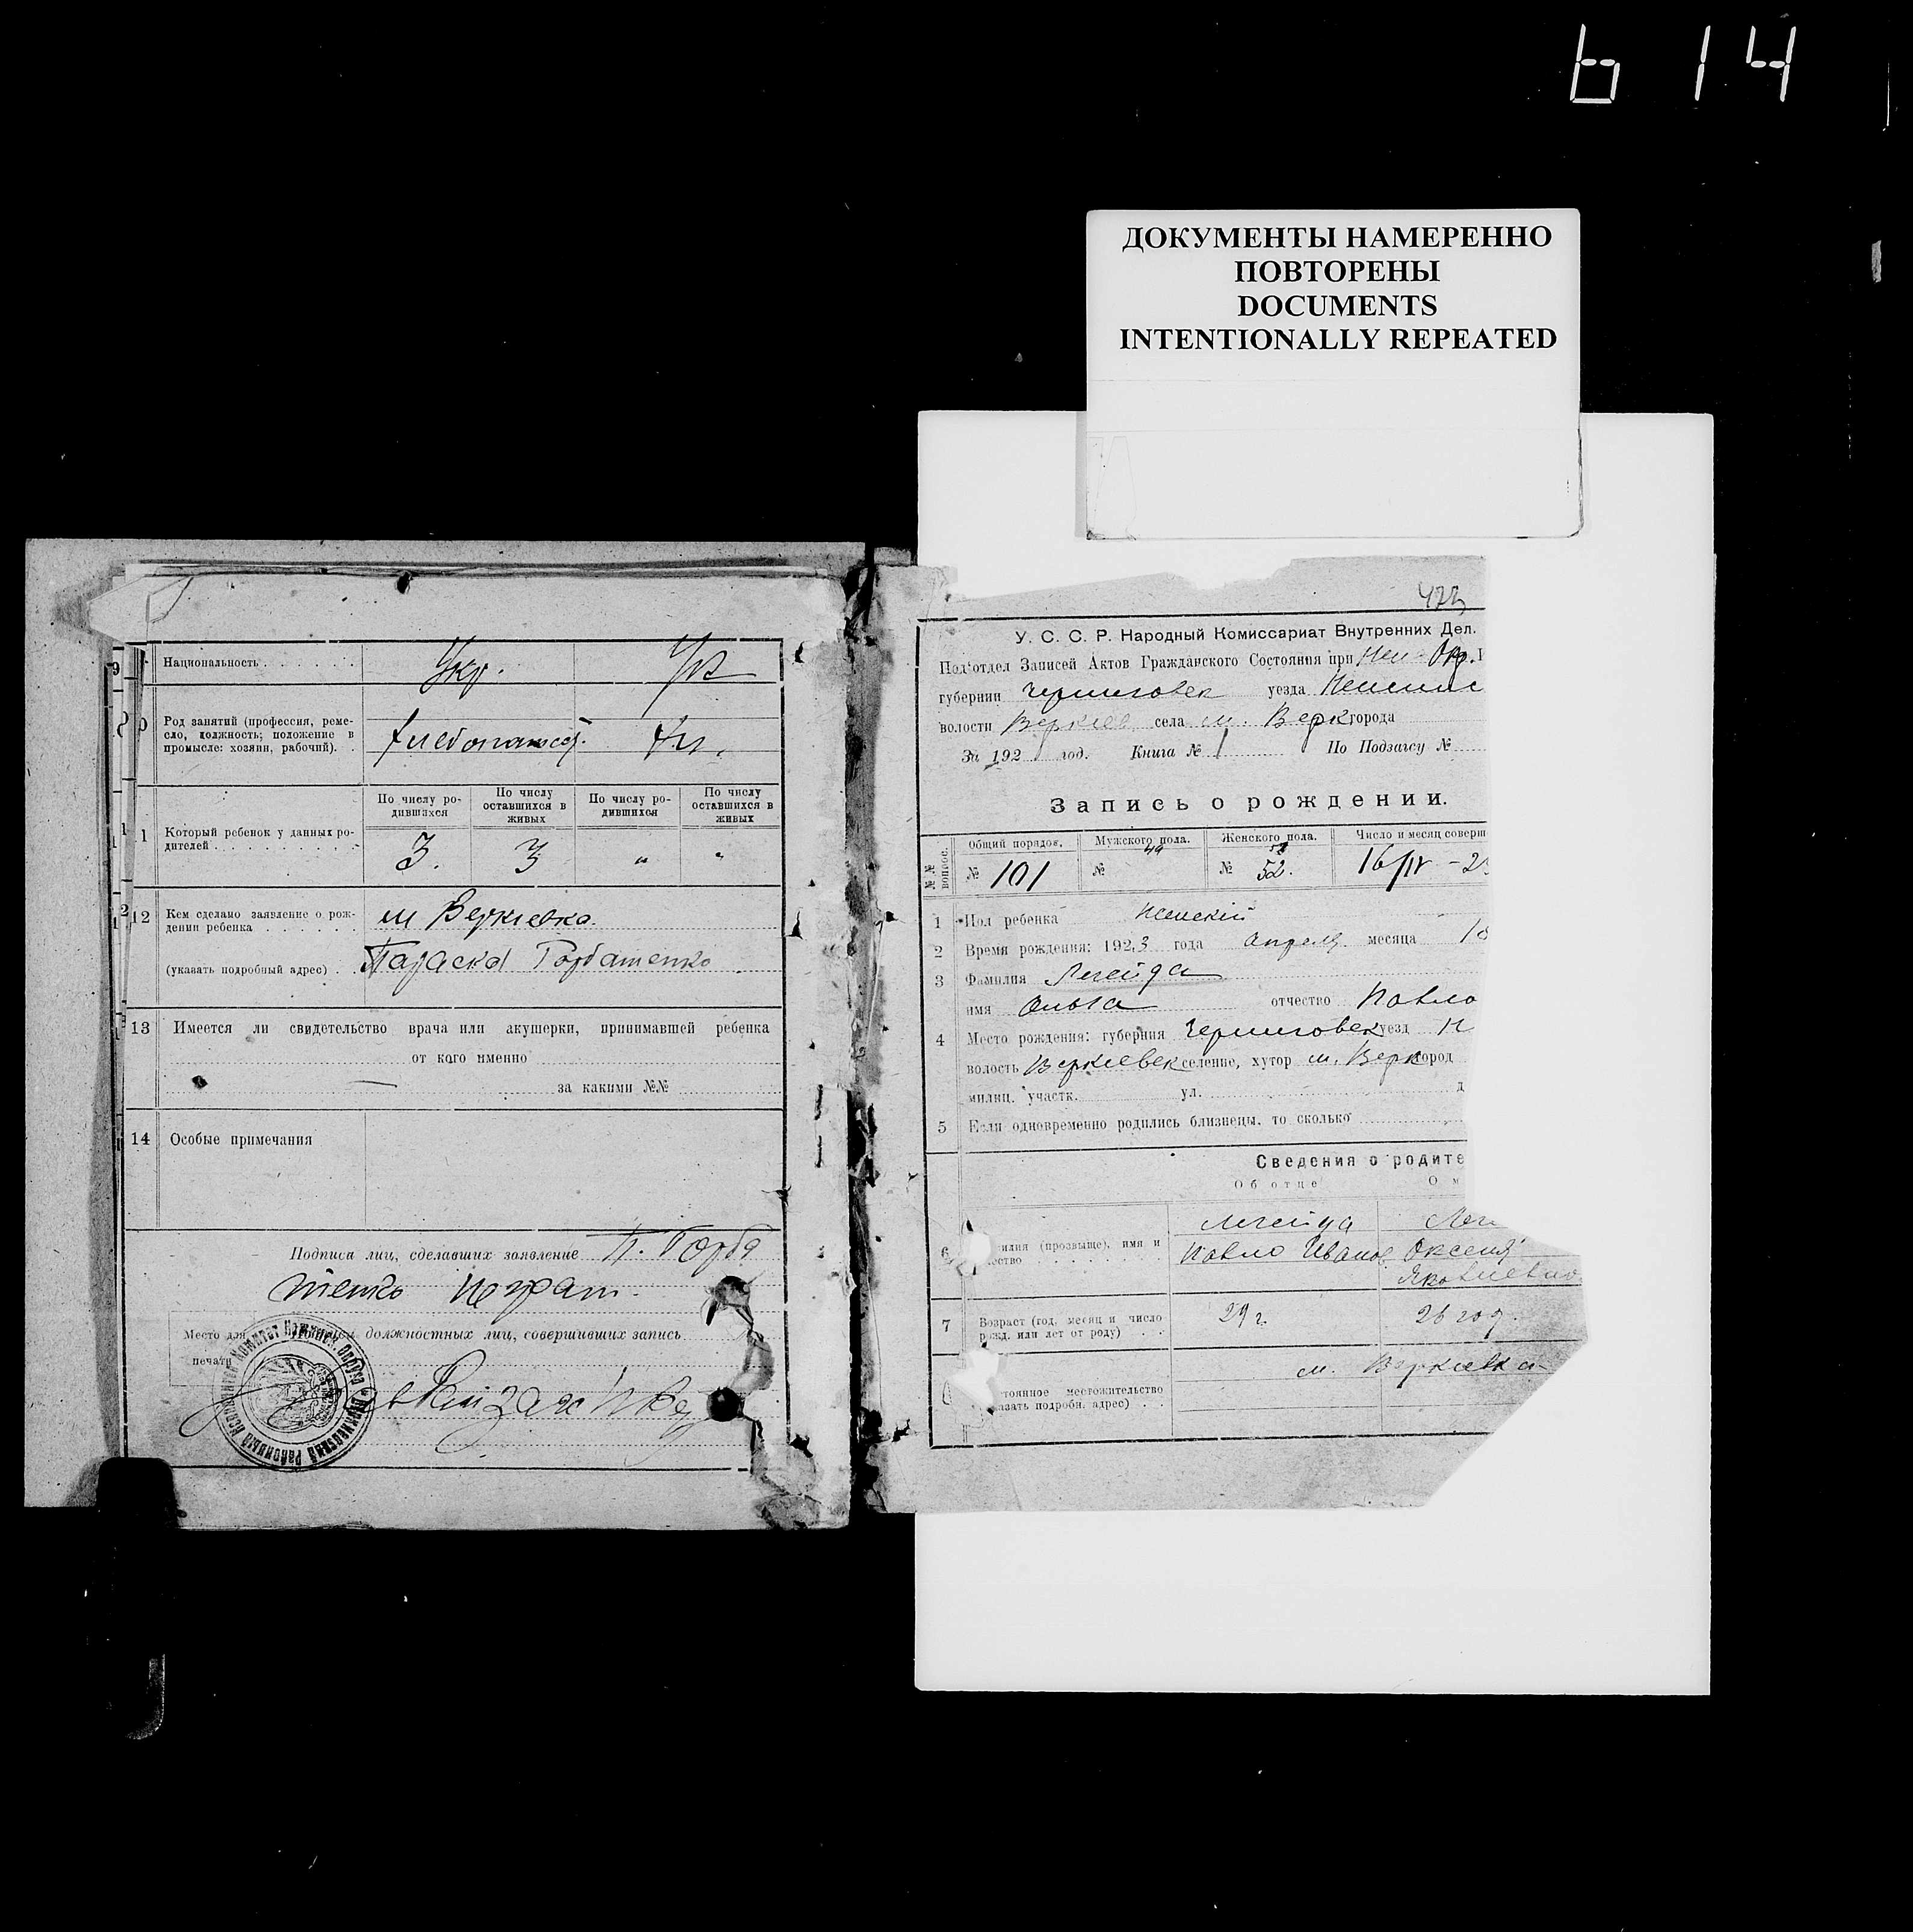 614
ДОКУМЕНТЫ НАМЕРЕННО
ПОВТОРЕНЫ
DOCUMENTS
INTENTIONALLY REPEATED
9 Национальность Укр. Ук
Род занятий (профессия, реме-
сло, должность; положение в
промысле: хозяин, рабочий).
По числу ро-
дившихся
По числу
оставшихся в
живых
По числу ро-
дившихся
По числу
оставшихся в
живых
11 Который ребенок у данных ро-
дителей 3. 3 " "
12 Кем сделано заявление о рож-
дении ребенка м Веркиевка.
(указать подробный адрес) Параска Горбатенко
13 Имеется ли свидетельство врача или акушерки, принимавшей ребенка
от кого именно
за какими №№
14 Особые примечания
Подписи лиц, сделавших заявление П. Горба
тенко
Место для
должностных лиц, совершивших запись
печати
У. С. С. Р. Народный Комиссариат Внутренних Дел.
Под'отдел Записей Актов Гражданского Состояния при Неж Окр.
губернии Черниговск уезда
волости Веркиев села м. Верк города
За 192 год. Книга № 1 По Подзагсу №
Запись о рождении.
№№ вопрос.
Общий порядов. Мужского пола. Женского пола. Число и месяц соверш
№ 101 № 49 № 52. 16/IV - 2
1 Пол ребенка женский
2 Время рождения: 1923 года апреля месяца
3 Фамилия Легейда
имя Ольга отчество Павло
4 Место рождения: губерния Черниговск уезд Н
волость Веркиевск селение, хутор м. Верк город
милиц. участк. ул. д
5 Если одновременно родились близнецы, то сколько
Сведения о родите
Об отце О м
6 Легейда Леге
милия (прозвище), имя и Павло Иванов Оксения
ество Яковлевна
7 Возраст (год, месяц и число 29 г. 26 год.
рожд. или лет от роду)
м. Веркиевка
тоянное местожительство
азать подробн. адрес)